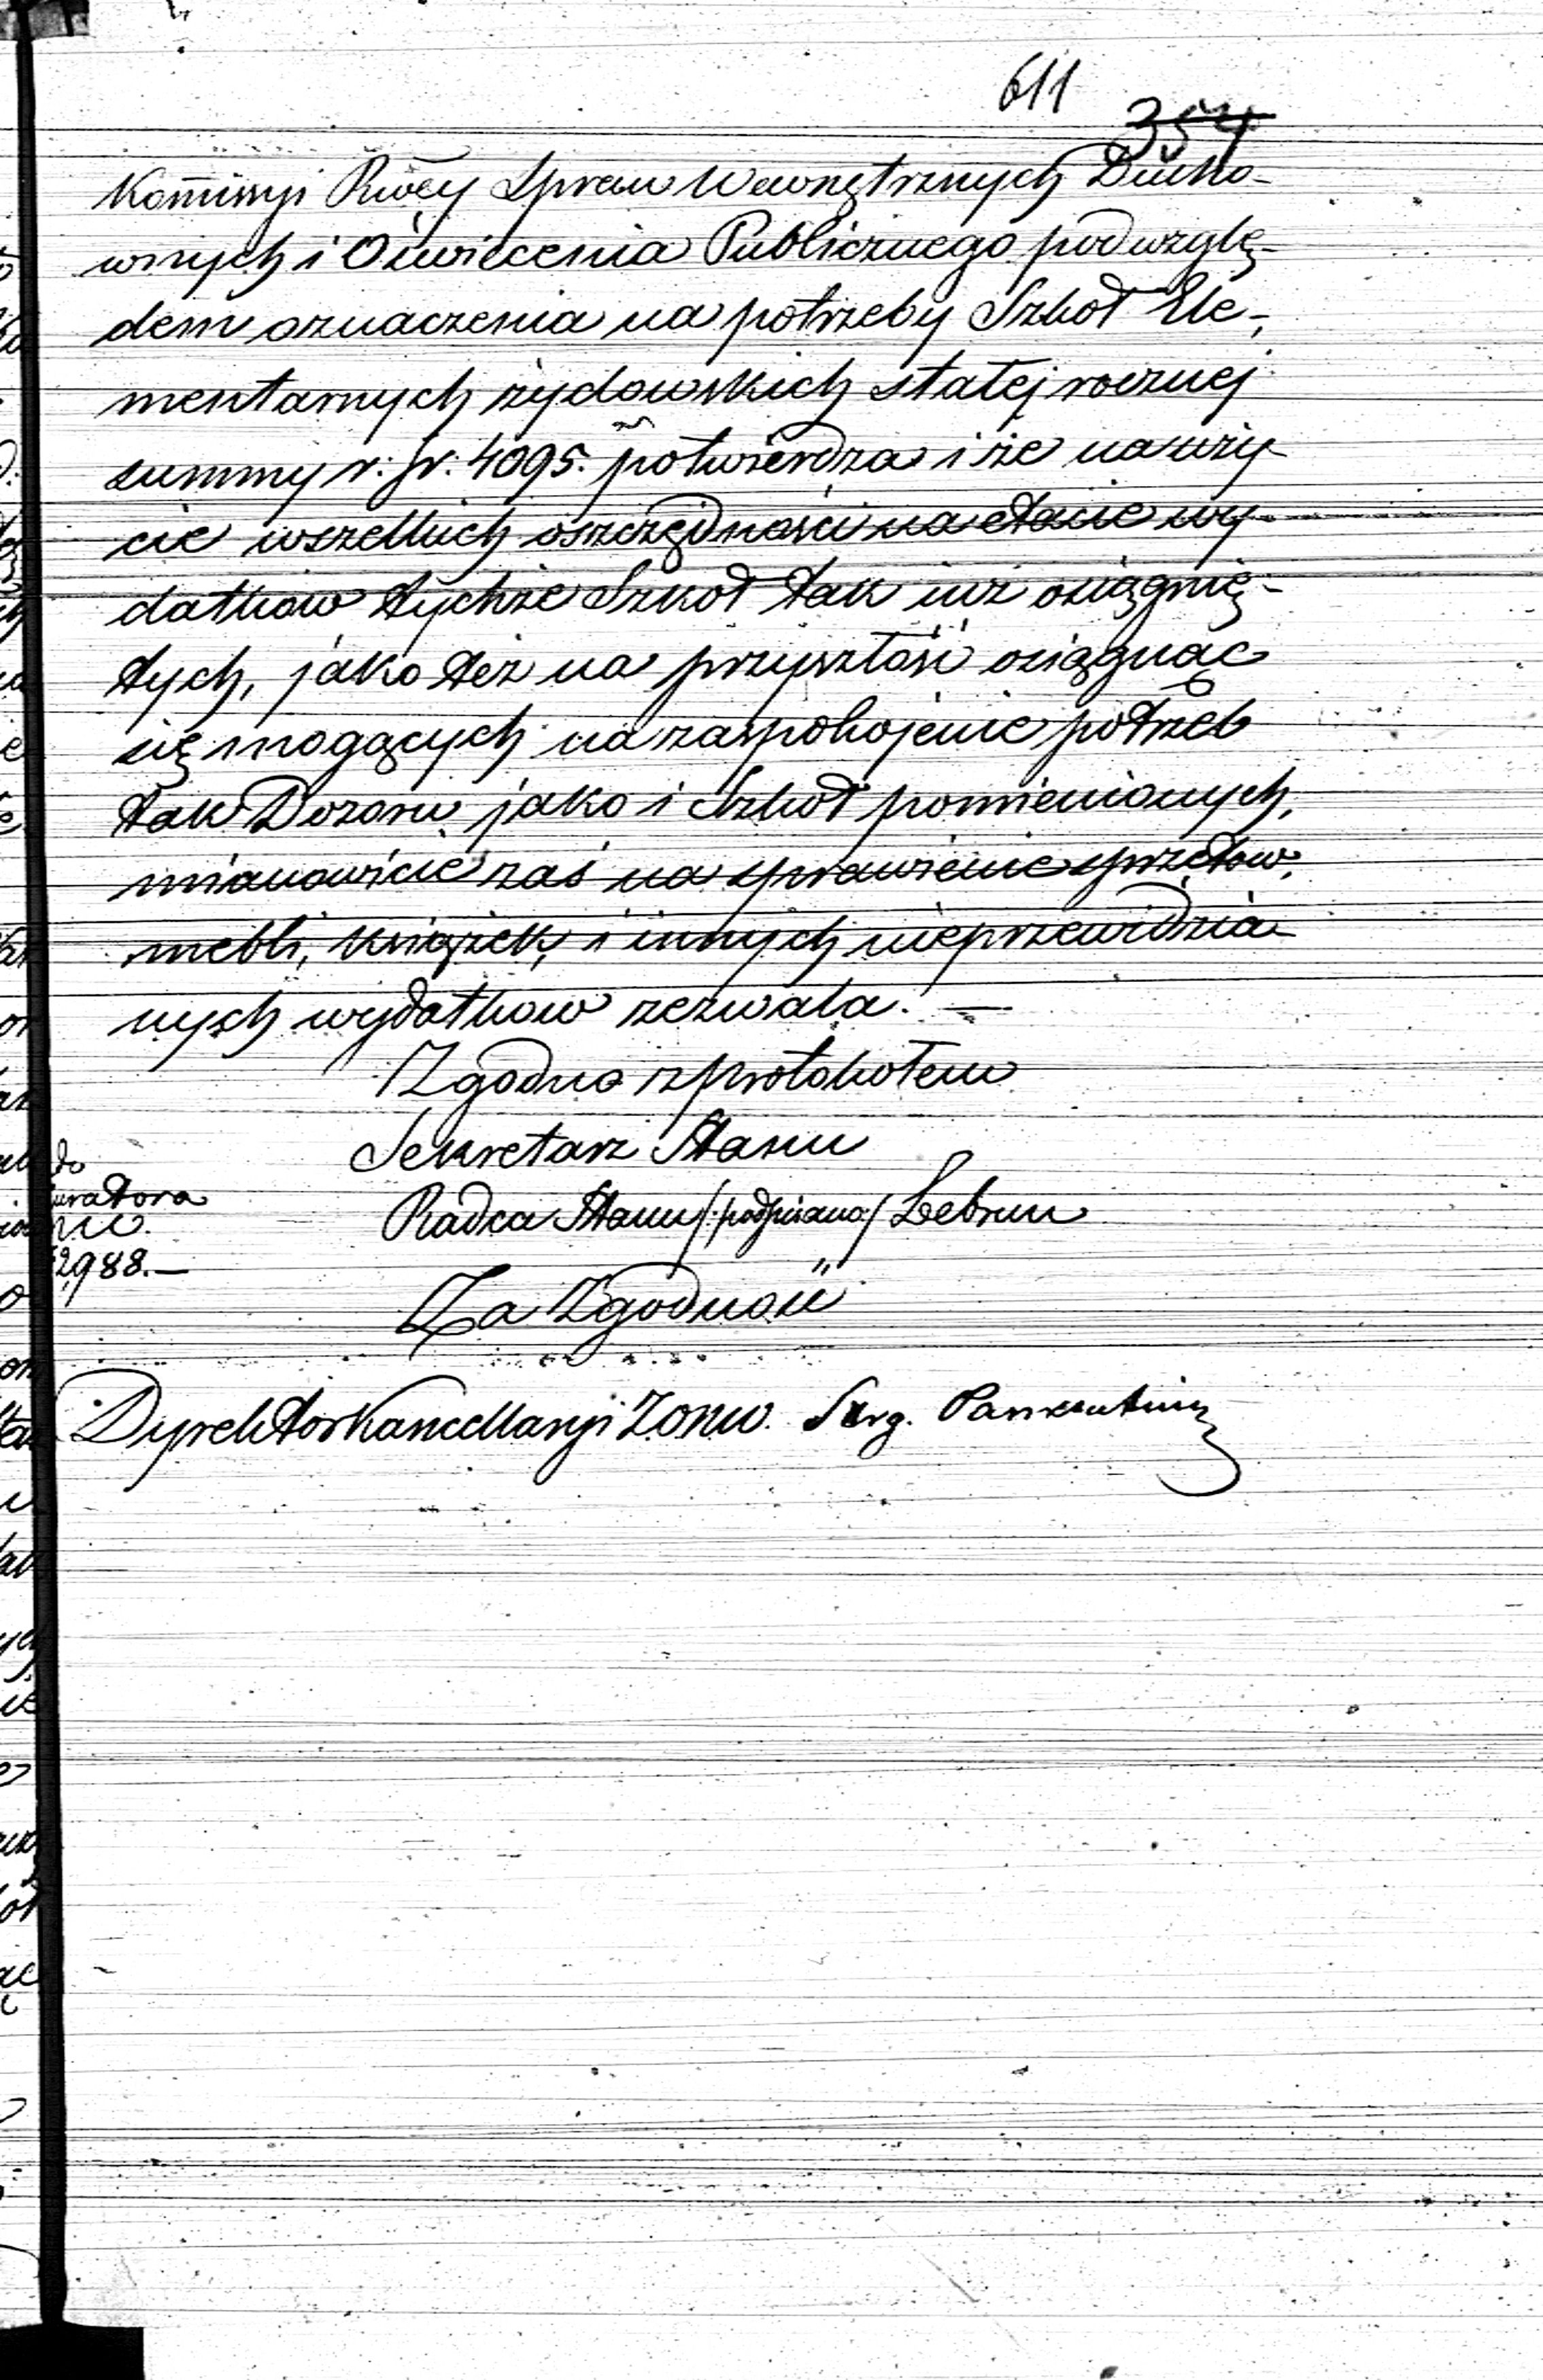 611
354
Kom̄issyi Rwēy Spraw Wewnętrznych Ducho-
wnych i Oświecenia Publicznego pod wzglę-
dem oznaczenia na potrzeby Szkoł Ele-
mentarnych żydowskich stałej rocznej
summy r: sr: 4095. potwierdza i że na uży-
cie wszelkich oszczędności na etacie wy-
datkow tychże Szkoł tak iuż osiągnię-
tych, jako też na przyszłość osiągnąć
się mogących na zaspokojenie potrzeb
tak Dozoru jako i Szkoł pomienionych,
mianowicie zaś na sprawienie sprzętow,
mebli, książek, i innych nieprzewidzia-
nych wydatkow zezwala. —
Zgodno z protokołem
Sekretarz Stanu
Radca Stanu /:podpisano:/ Lebrun
Za Zgodność
Dyrektor Kancellaryi
do
uratora
2,988.—